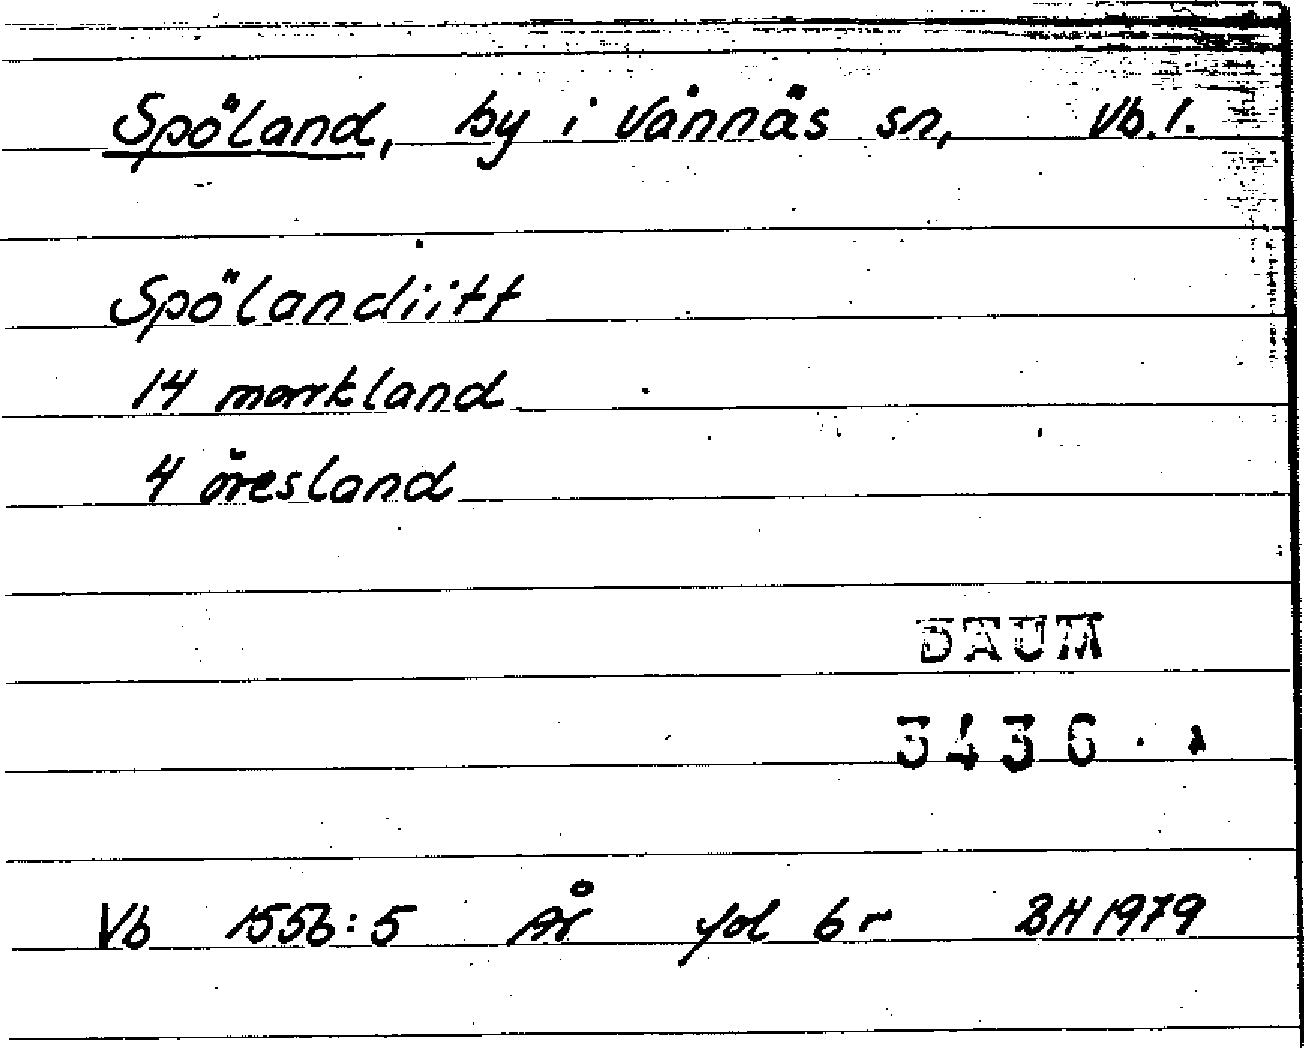 Spöland, by i Vännäs sn, Vb.l.
Spölandiitt
14 markland
4 öresland
DAUM
3436
Vb 1556:5 År fol 6r BH 1979